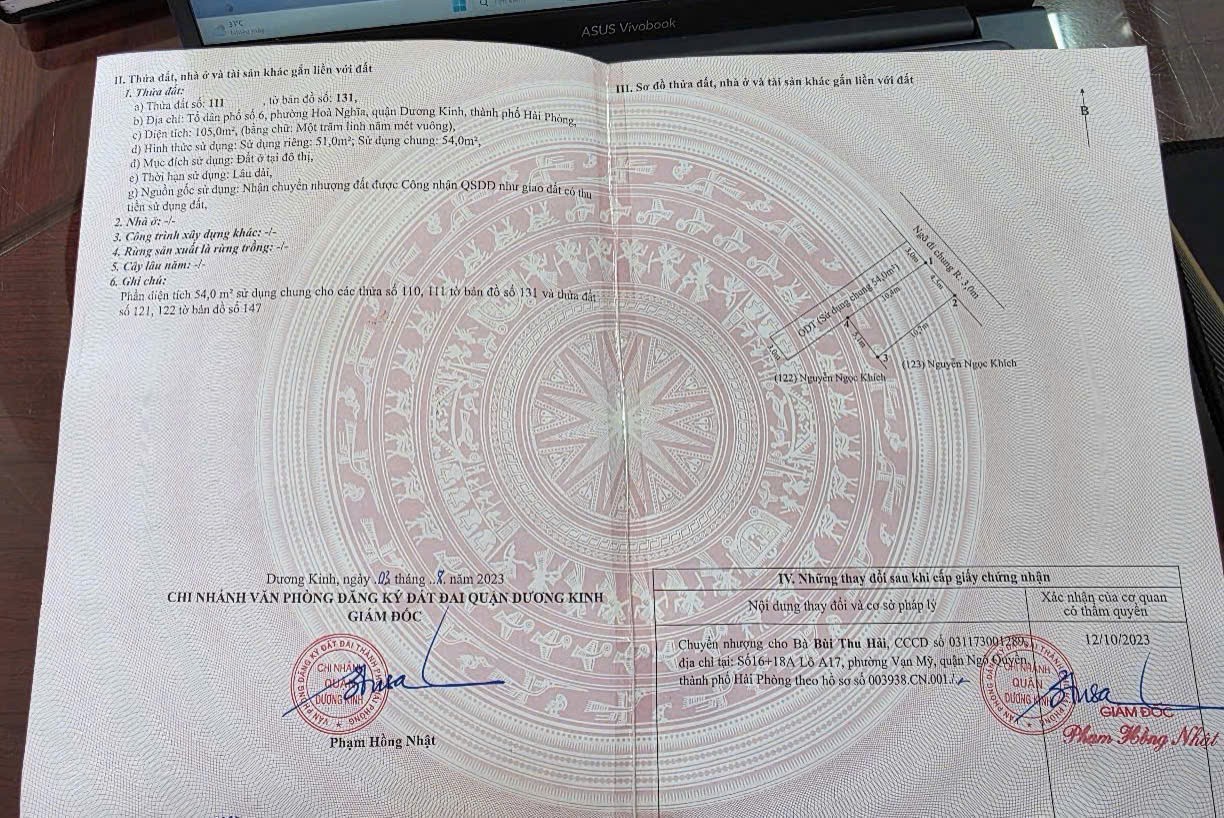 31°C
ASUS Vivobook
II. Thửa đất, nhà ở và tài sản khác gắn liền với đất
1. Thửa đất:
a) Thửa đất số: 111 , tờ bản đồ số: 131,
b) Địa chỉ: Tổ dân phố số 6, phường Hoà Nghĩa, quận Dương Kinh, thành phố Hải Phòng,
c) Diện tích: 105,0m², (bằng chữ: Một trăm linh năm mét vuông),
d) Hình thức sử dụng: Sử dụng riêng: 51,0m²; Sử dụng chung: 54,0m²,
đ) Mục đích sử dụng: Đất ở tại đô thị,
e) Thời hạn sử dụng: Lâu dài,
g) Nguồn gốc sử dụng: Nhận chuyển nhượng đất được Công nhận QSDĐ như giao đất có thu
tiền sử dụng đất,
2. Nhà ở: -/-
3. Công trình xây dựng khác: -/-
4. Rừng sản xuất là rừng trồng: -/-
5. Cây lâu năm: -/-
6. Ghi chú:
Phần diện tích 54,0 m² sử dụng chung cho các thửa số 110, 111 tờ bản đồ số 131 và thửa đất
số 121, 122 tờ bản đồ số 147
Dương Kinh, ngày 03 tháng 8 năm 2023
CHI NHÁNH VĂN PHÒNG ĐĂNG KÝ ĐẤT ĐAI QUẬN DƯƠNG KINH
GIÁM ĐỐC
VĂN PHÒNG ĐĂNG KÝ ĐẤT ĐAI THÀNH PHỐ HẢI PHÒNG
CHI NHÁNH
QUẬN
DƯƠNG KINH
Phạm Hồng Nhật
III. Sơ đồ thửa đất, nhà ở và tài sản khác gắn liền với đất
B
Ngõ đi chung R: 3,0m
3,0m
1
ODT (Sử dụng chung 54,0m²)
2
4
3
3,0m
(123) Nguyễn Ngọc Khích
(122) Nguyễn Ngọc Khích
IV. Những thay đổi sau khi cấp giấy chứng nhận
Nội dung thay đổi và cơ sở pháp lý
Xác nhận của cơ quan
có thẩm quyền
Chuyển nhượng cho Bà Bùi Thu Hải, CCCD số 031173001289,
địa chỉ tại: Số16+18A Lô A17, phường Vạn Mỹ, quận Ngô Quyền,
thành phố Hải Phòng theo hồ sơ số 003938.CN.001./.
12/10/2023
CHI NHÁNH
QUẬN
DƯƠNG KINH
GIÁM ĐỐC
Phạm Hồng Nhật